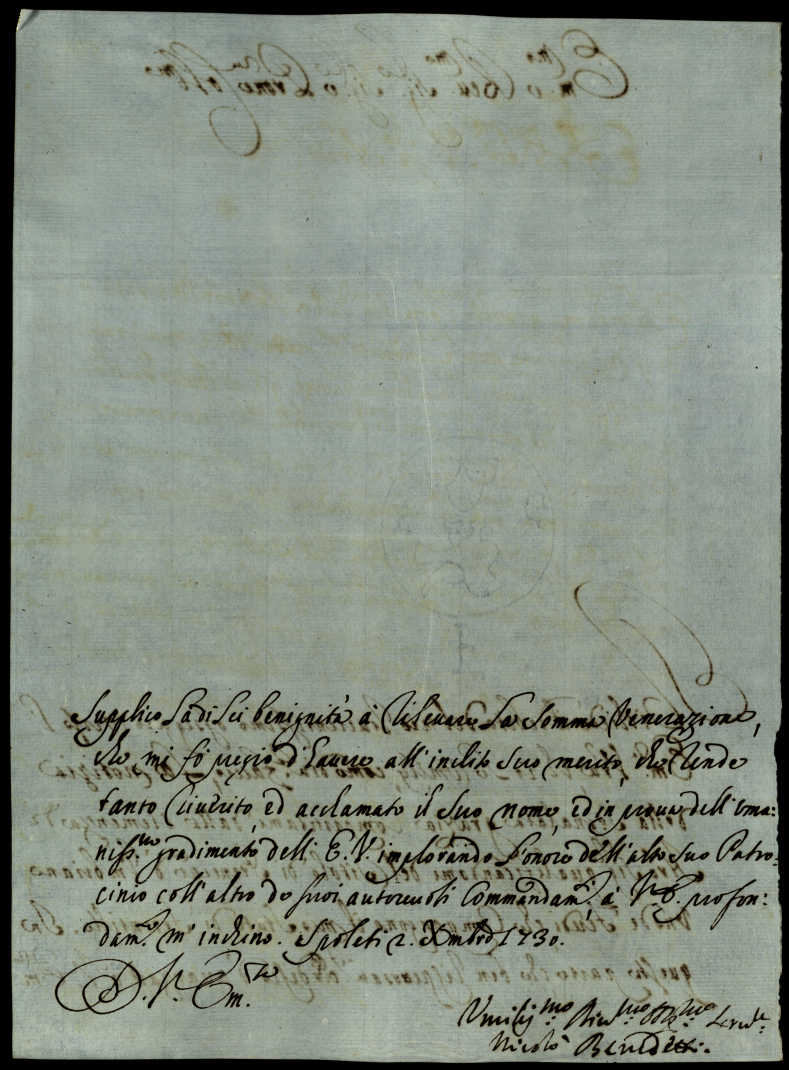 Supplico la di Lei benignità à rilevare la somma Venerazione,
che mi fò pregio d'havere all'inclito suo merito, che rende
tanto riverito, ed acclamato il suo nome, ed in prova dell'uma:
niss.mo gradimento dell'E.V. implorando l'onore dell'alto suo Patro:
cinio coll'altro de suoi autorevoli Commandam.ti, à V.E. profon:
dam.te m'inchino. Spoleti 2. Xmbre 1730.
D. V. Em.za
Umiliss.mo Div.mo Obb.mo Serv.re
Nicolò Benedetti.